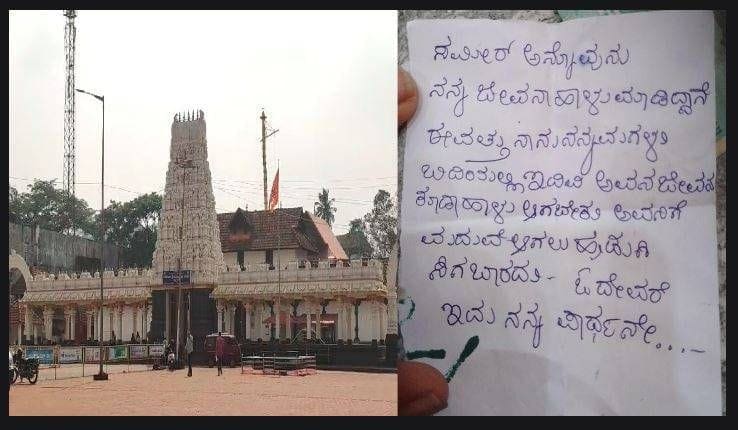 ಸಮೀರ್ ಅನ್ನೋವನು
ನನ್ನ ಜೀವನಾ ಹಾಳು ಮಾಡಿದ್ದಾನೆ
ಈವತ್ತು ನಾನು ನನ್ನ ಮಗಳು
ಬಿದಿಯಲ್ಲಿ ಇದಿವಿ ಅವನ ಜೀವನ
ಕೂಡಾ ಹಾಳು ಆಗಬೇಕು ಅವನಿಗೆ
ಮದುವೆ ಆಗಲು ಹುಡುಗಿ
ಸಿಗಬಾರದು - ಓ ದೇವರೆ
ಇದು ನನ್ನ ಪಾರ್ಥನೇ...-